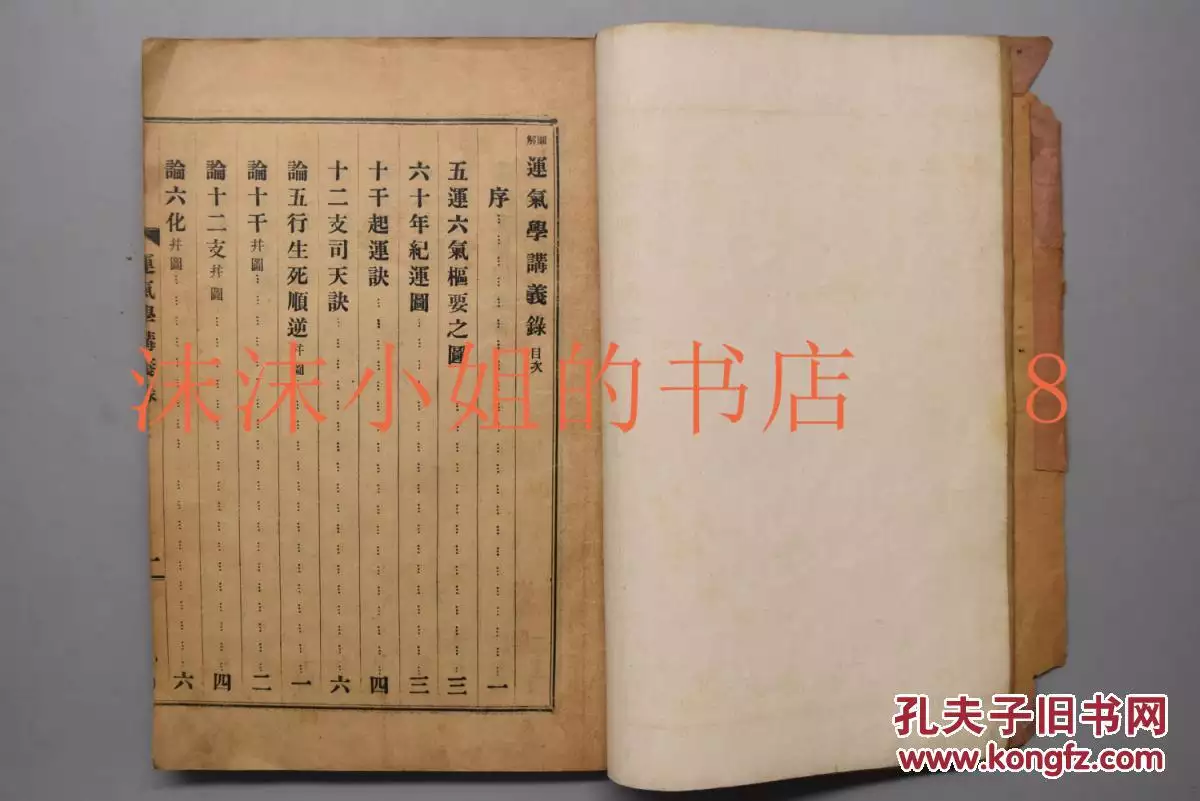 圖解 運氣學講義錄 目次
序 一
五運六氣樞要之圖 三
六十年紀運圖 三
十干起運訣 四
十二支司天訣 六
論五行生死順逆 并圖 一
論十干 并圖 二
論十二支 并圖 四
論六化 并圖 六
運氣學講義錄
一
沫沫小姐的书店 8
孔夫子旧书网
www.kongfz.com